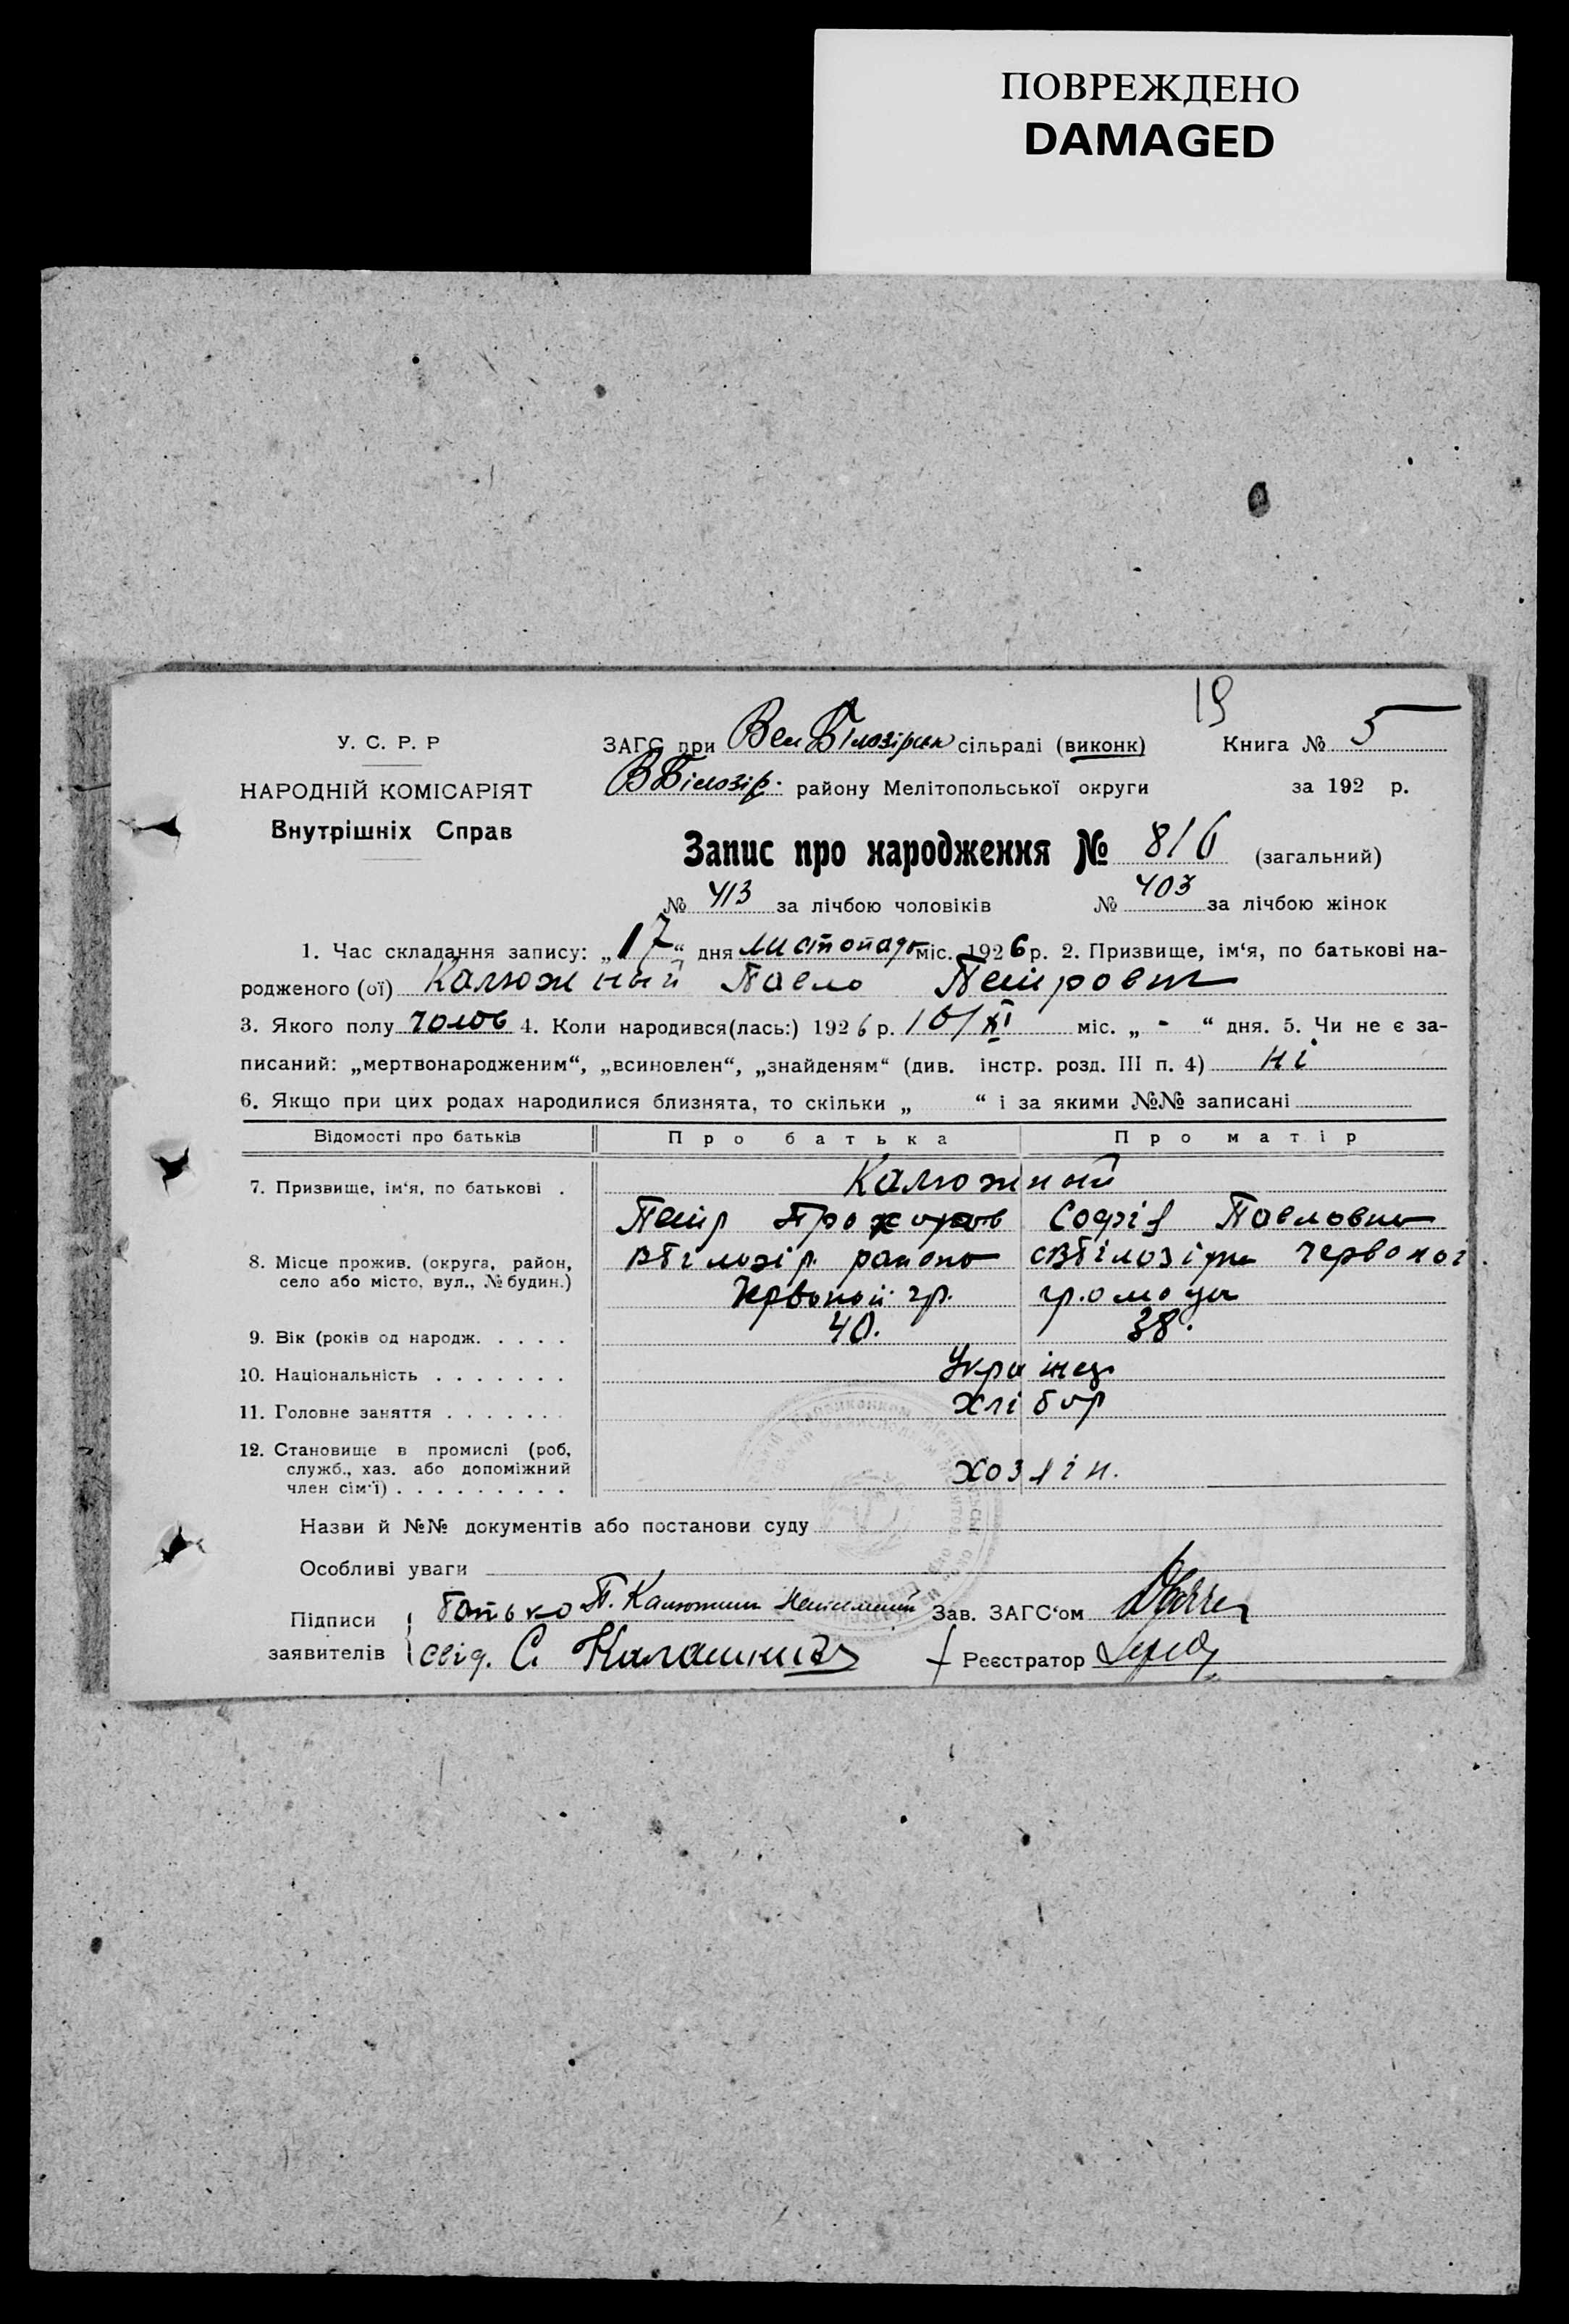 ПОВРЕЖДЕНО
DAMAGED
19
У. С. Р. Р
НАРОДНІЙ КОМІСАРІЯТ
Внутрішніх Справ
ЗАГС при Вел Білозірськ сільраді (виконк) Книга № 5
ВБілозір. району Мелітопольської округи за 192 р.
Запис про народження № 816 (загальний)
№ 413 за лічбою чоловіків № 403 за лічбою жінок
1. Час складання запису: „17“ дня листопада міс. 1926 р. 2. Призвище, ім‘я, по батькові на-
родженого (ої) Калюжный Павло Петрович
3. Якого полу чолов 4. Коли народився(лась:) 1926 р. 10/XI міс. „ - “ дня. 5. Чи не є за-
писаний: „мертвонародженим“, „всиновлен“, „знайденям“ (див. інстр. розд. III п. 4) ні
6. Якщо при цих родах народилися близнята, то скільки „ “ і за якими №№ записані
Відомості про батьків Про батька Про матір
7. Призвище, ім‘я, по батькові . Калюжный
Петр Прохоров Софія Павловна
8. Місце прожив. (округа, район, село або місто, вул., № будин.) ВБілозір. району сВБілозірки Червоної
Червоной гр. громади
9. Вік (років од народж. . . . . 40. 38.
10. Національність . . . . . . . Українец
11. Головне заняття . . . . . . . хлібор
12. Становище в промислі (роб,
служб., хаз. або допоміжний
член сім‘ї) . . . . . . . . . хозяін.
Назви й №№ документів або постанови суду
Особливі уваги
Підписи заявителів батько П. Калюжный Зав. ЗАГС‘ом
свід. С. Реєстратор